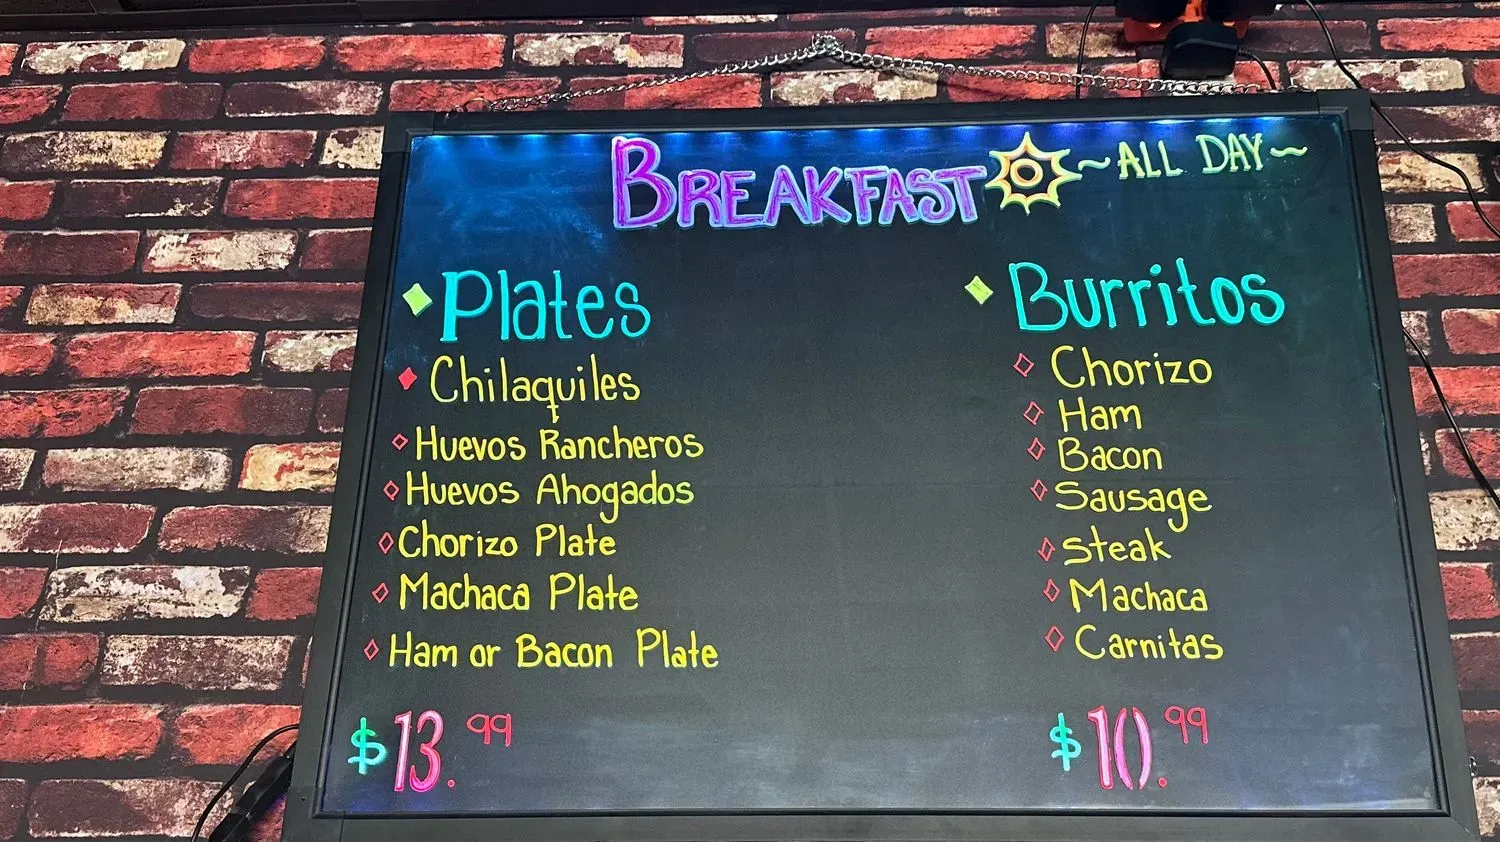 BREAKFAST ~ALL DAY~
Plates
Chilaquiles
Huevos Rancheros
Huevos Ahogados
Chorizo Plate
Machaca Plate
Ham or Bacon Plate
$13.99
Burritos
Chorizo
Ham
Bacon
Sausage
Steak
Machaca
Carnitas
$10.99